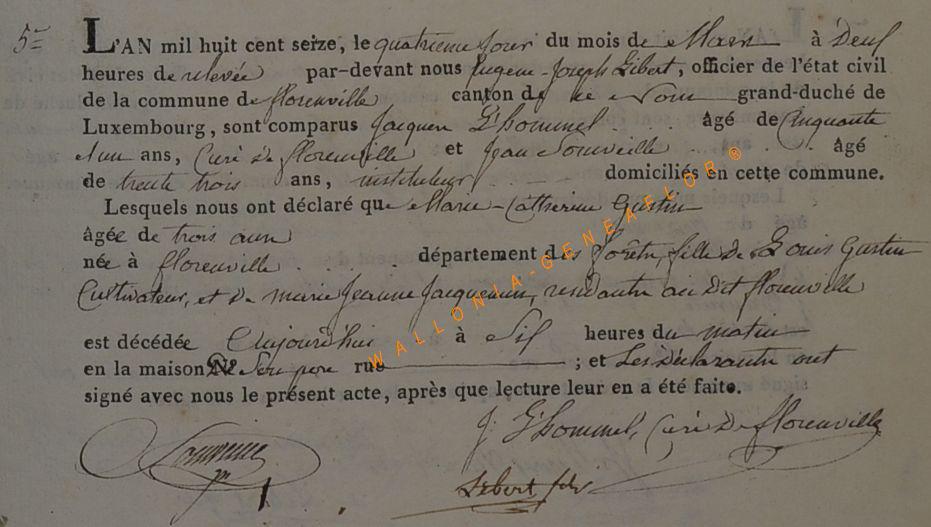 5e
L'AN mil huit cent seize, le quatrieme jour du mois de Mars à Deux
heures de relevée par-devant nous Eugene-Joseph Libert, officier de l'état civil
de la commune de florenville canton de ce nom grand-duché de
Luxembourg, sont comparus Jacques L'hommel âgé de Cinquante
et un ans, Curé de florenville et Jean âgé
de trente trois ans, instituteur domiciliés en cette commune.
Lesquels nous ont déclaré que Marie-Catherine Gustin
âgée de trois ans
née à florenville département des forêts, fille de Louis Gustin
Cultivateur, et de marie Jeanne Jacquemin, residante au dit florenville
est décédée Aujourd'hui à Six heures du matin
en la maison De Son pere rue ; et Les Déclarants ont
signé avec nous le présent acte, après que lecture leur en a été faite.
J. L'hommel, Curé De florenville
Libert
WALLONIA-GENEAFLOR ®